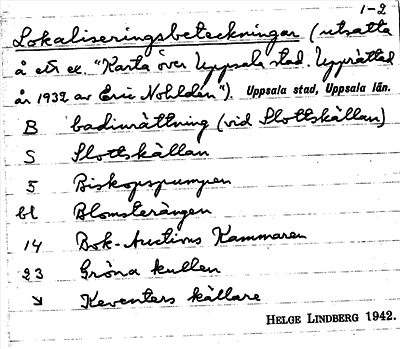 1-2
Lokaliseringsbeteckningar (utsatta
å ett ex. "Karta över Uppsala stad. Upprättad
år 1932 av Eric Nohldén"). Uppsala stad, Uppsala län.
B badinrättning (vid Slottskällan)
S Slottskällan
5 Biskopspumpen
bl Blomsterängen
14 Bok-Auctions Kammaren
23 Gröna kullen
Keventers källare
HELGE LINDBERG 1942.